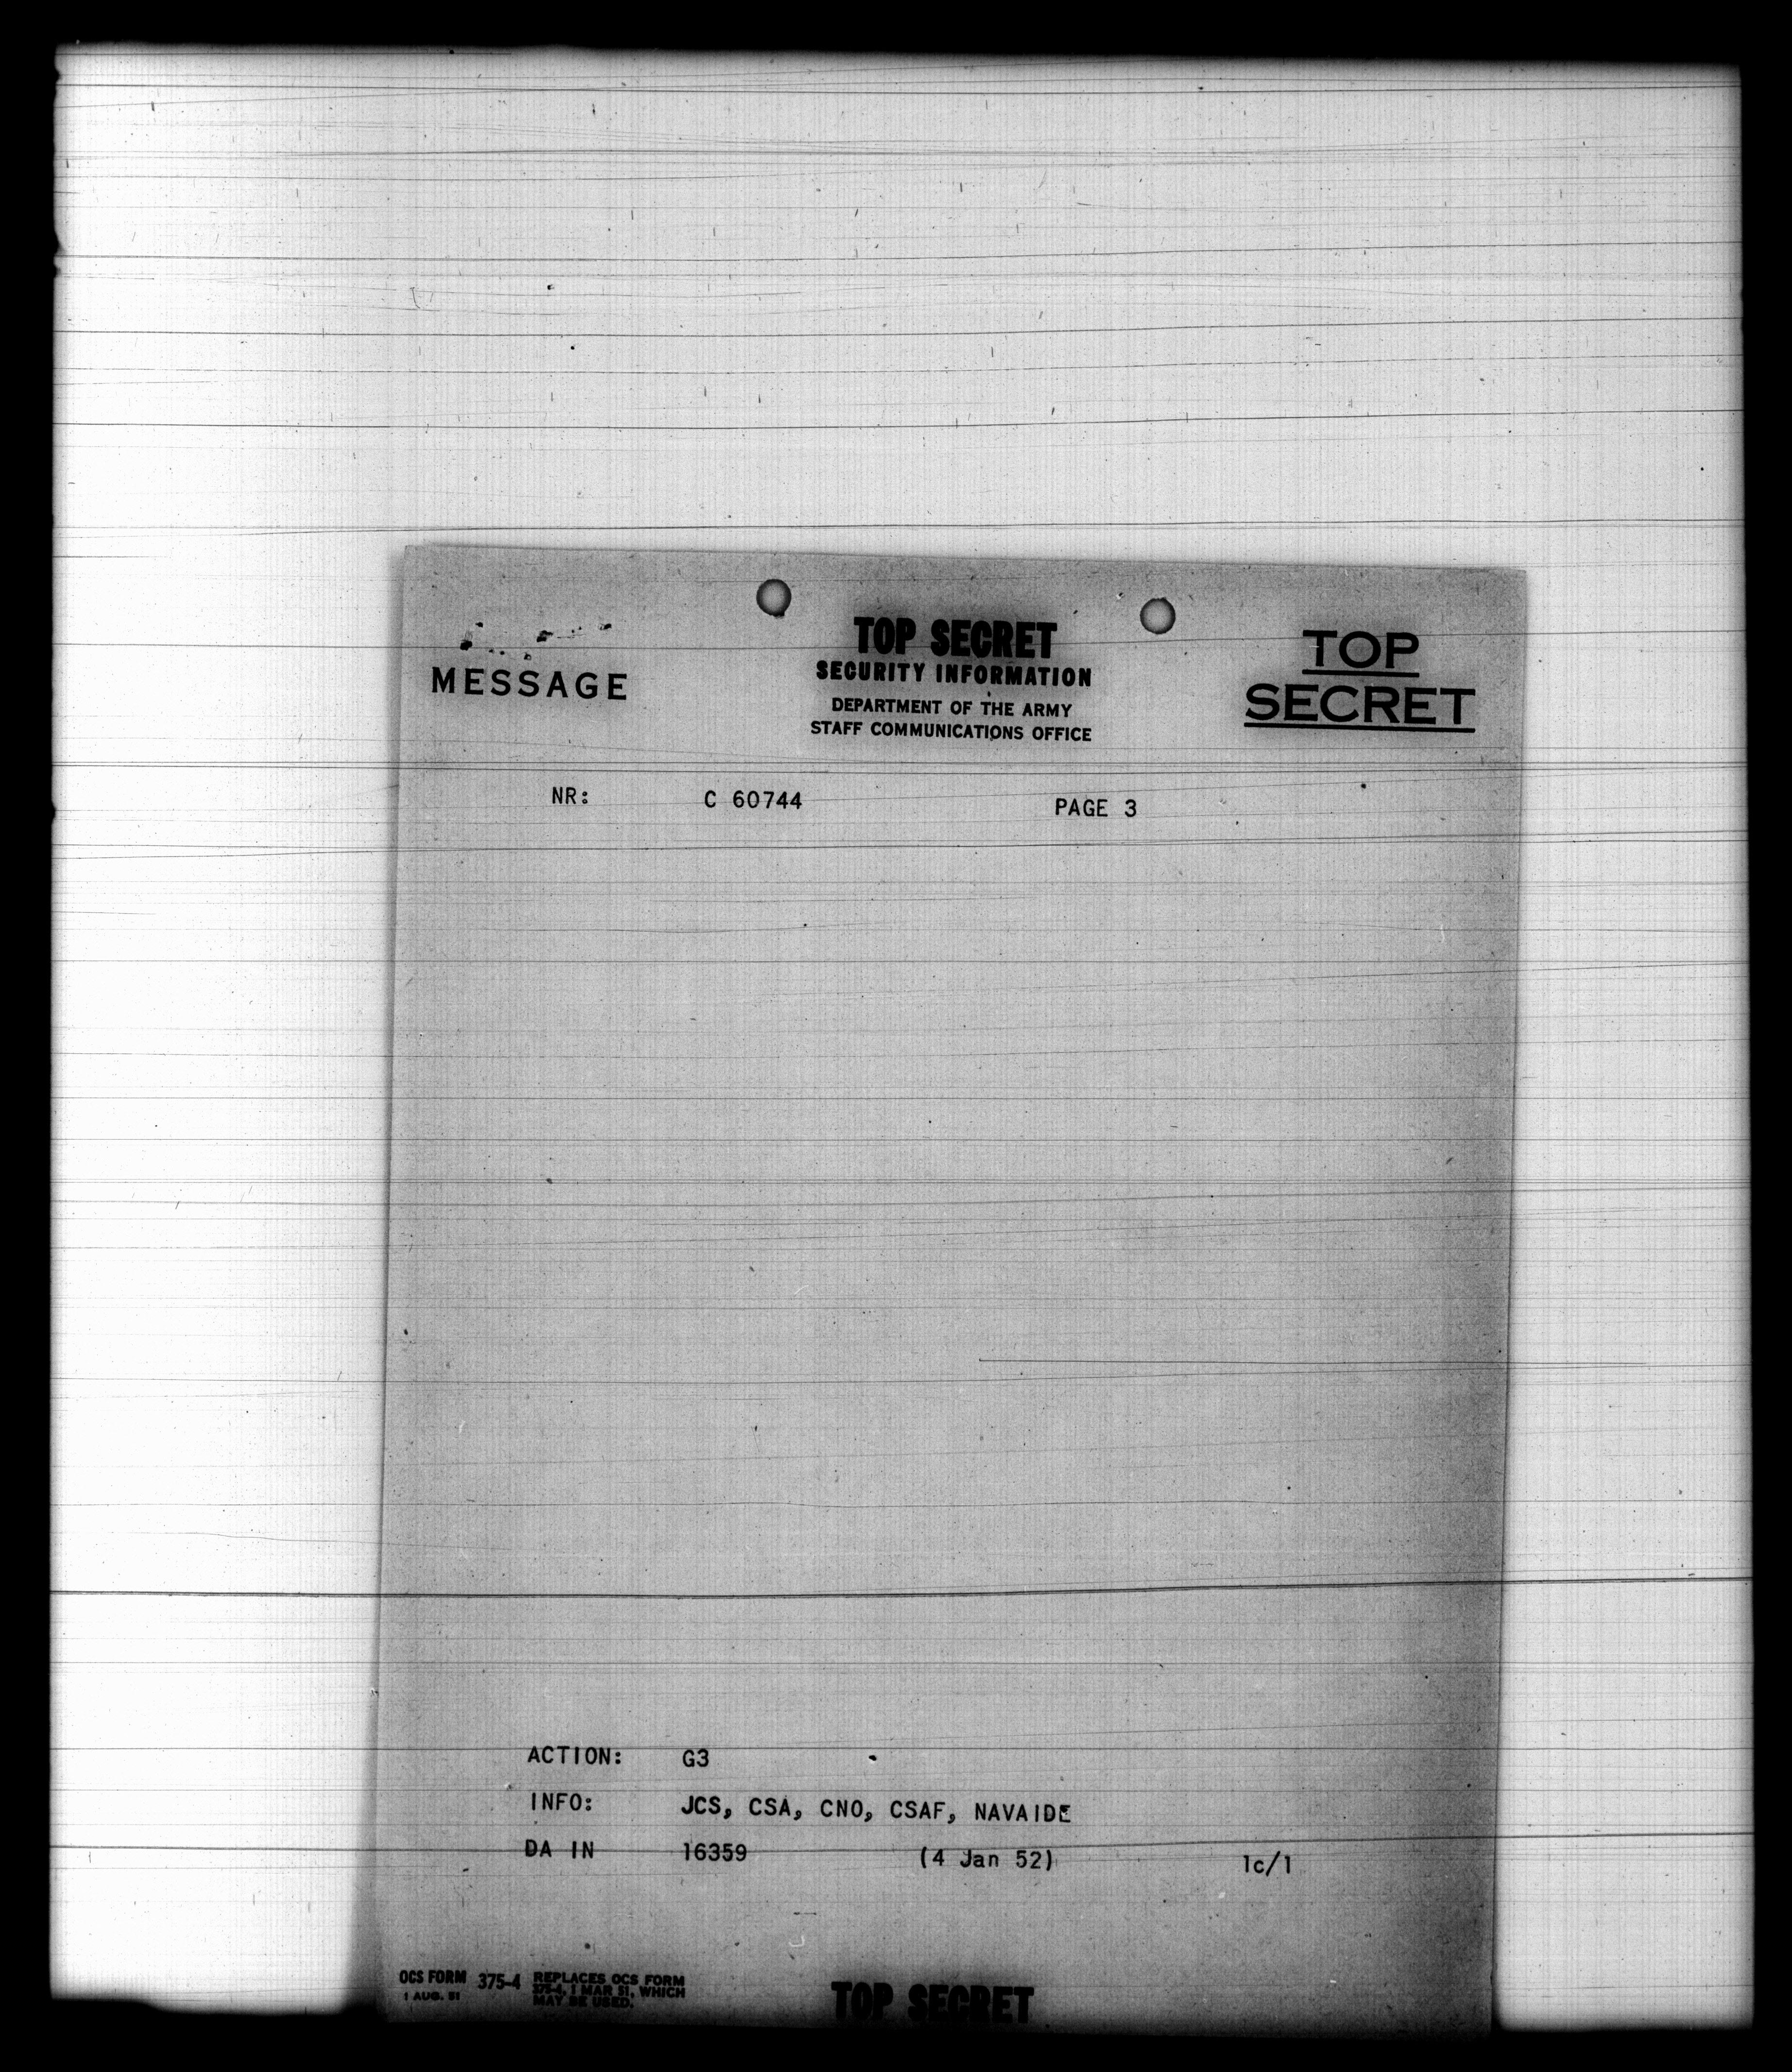 TOP SECRET
SECURITY INFORMATION
DEPARTMENT OF THE ARMY
STAFF COMMUNICATIONS OFFICE
MESSAGE
TOP
SECRET
NR: C 60744 PAGE 3
ACTION: G3
INFO: JCS, CSA, CNO, CSAF, NAVAIDE
DA IN 16359 (4 Jan 52) 1c/1
OCS FORM 375-4 REPLACES OCS FORM
1 AUG. 51 375-4, 1 MAR 51, WHICH
MAY BE USED.
TOP SECRET